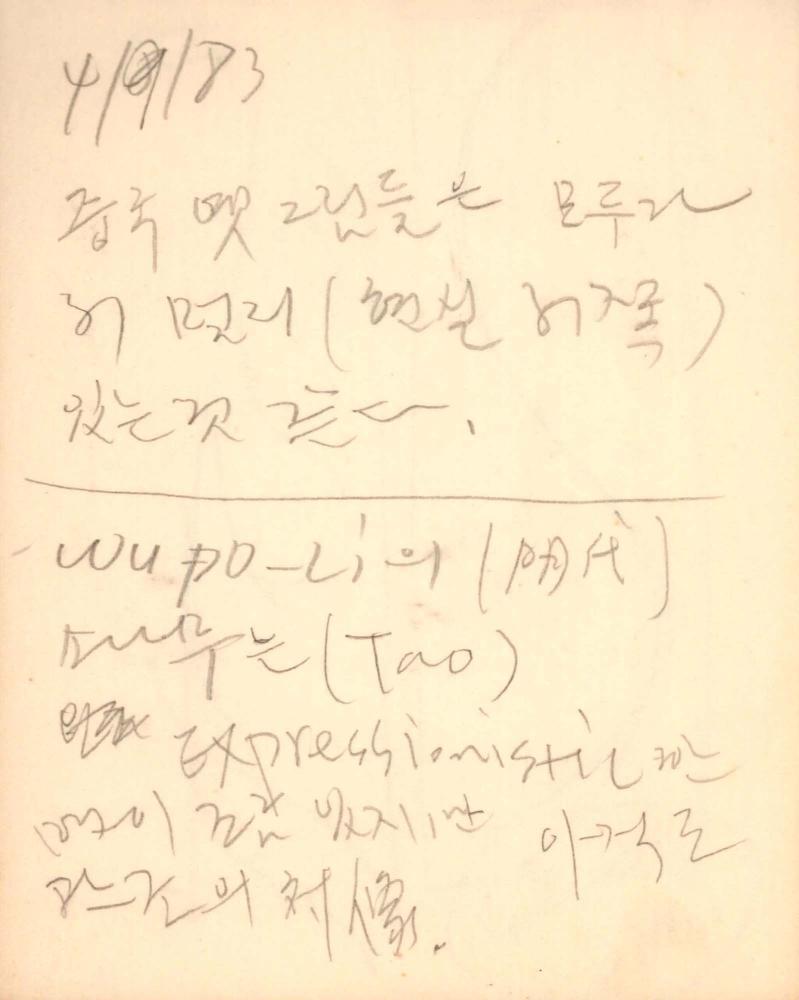 4/9/83
중국 옛 그림들은 모두가
허 멀리 (현실 허쪽)
있는것 같다.
Wu po-Li의 (明代)
소나무는 (Tao)
Expressionistic한
면이 조금 있지만 아직도
의 像.